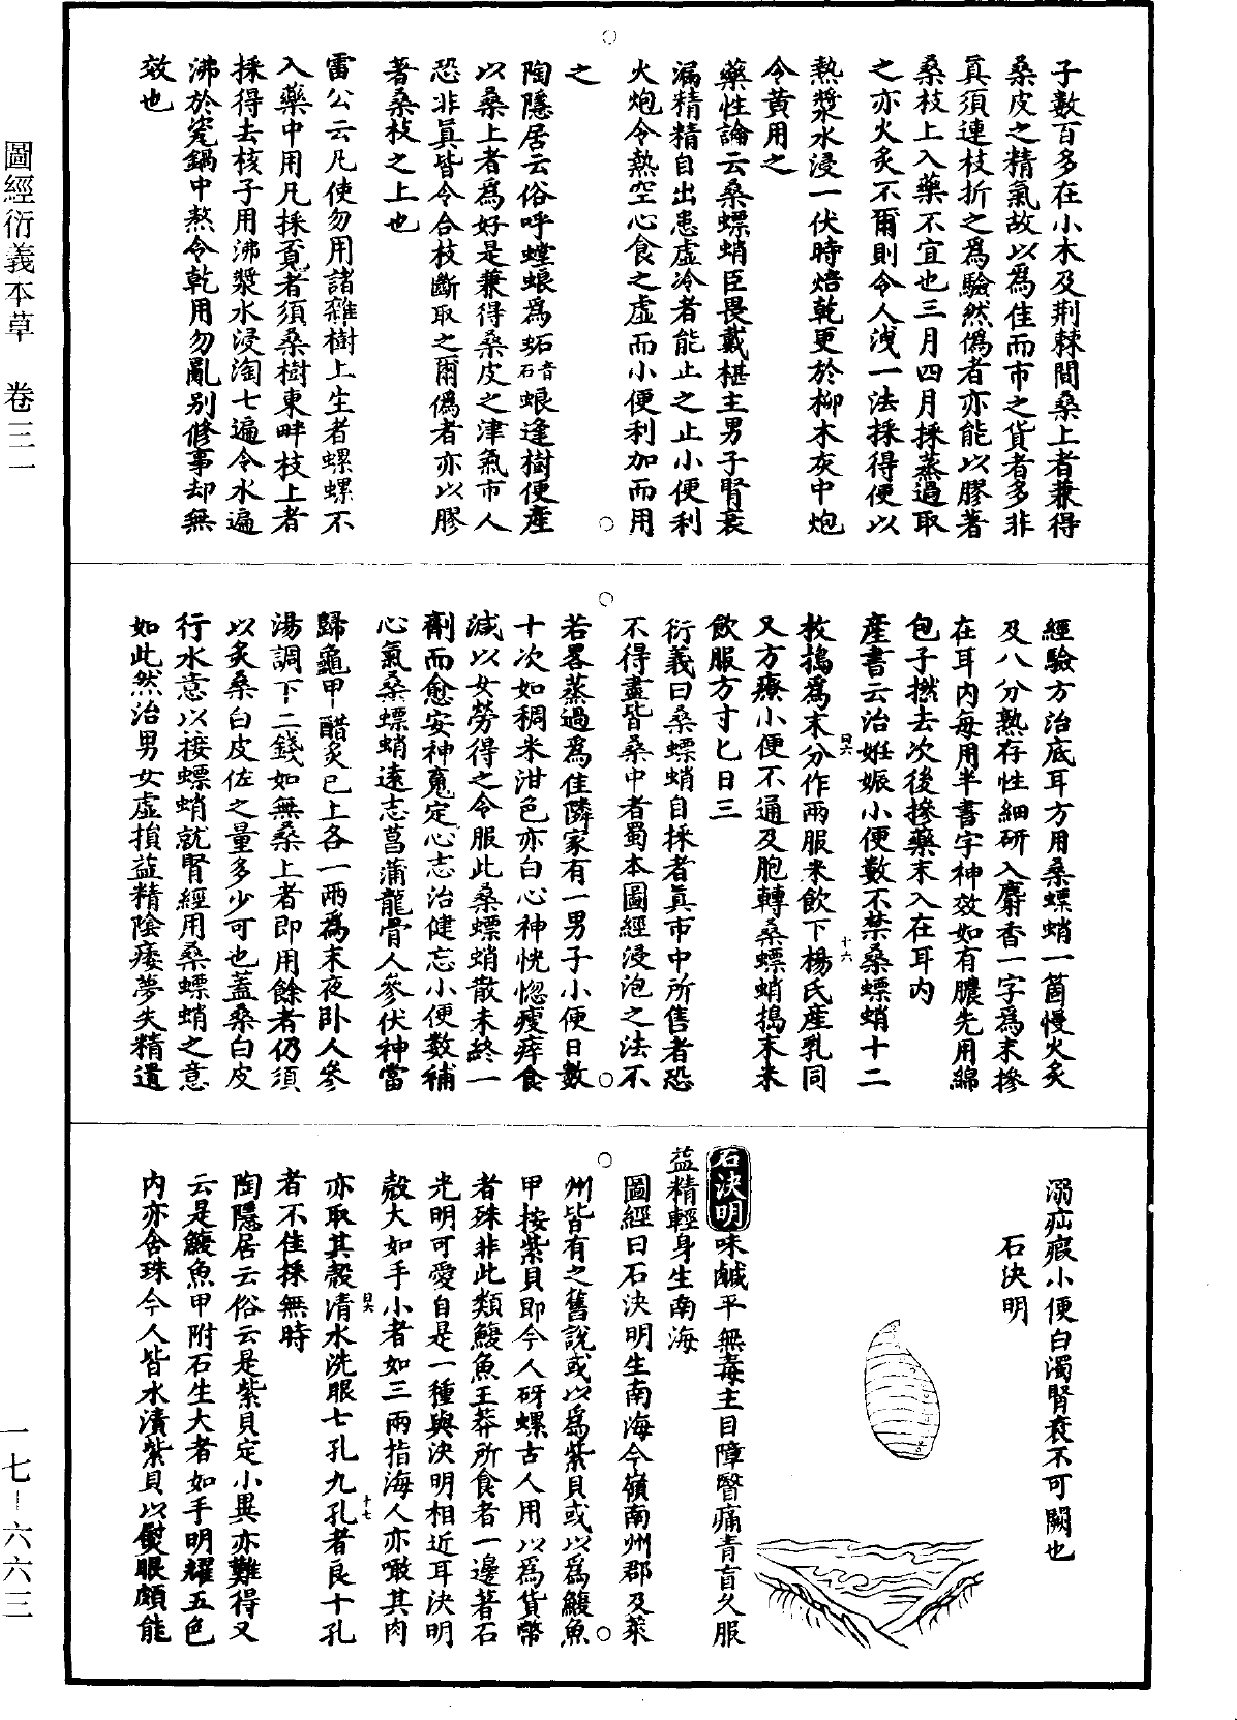 圖經衍義本草　卷三一
一七—六六三
子數百多在小木及荆棘間桑上者兼得
桑皮之精氣故以爲佳而市之貨者多非
真須連枝折之爲驗然僞者亦能以膠著
桑枝上入藥不宜也三月四月採蒸過取
之亦火炙不爾則令人洩一法採得便以
熱漿水浸一伏時焙乾更於柳木灰中炮
令黄用之
藥性論云桑螵蛸臣畏戴椹主男子腎衰
漏精精自出患虛冷者能止之止小便利
火炮令熱空心食之虛而小便利加而用
之
陶隱居云俗呼螳蜋爲蚯音石蜋逢樹便產
以桑上者爲好是兼得桑皮之津氣市人
恐非眞皆令合枝斷取之爾僞者亦以膠
著桑枝之上也
雷公云凡使勿用諸雜樹上生者螺螺不
入藥中用凡採覓者須桑樹東畔枝上者
採得去核子用沸漿水浸淘七遍令水遍
沸於瓷鍋中熬令乾用勿亂别修事却無
效也
經驗方治底耳方用桑螵蛸一箇慢火炙
及八分熟存性細研入麝香一字爲末摻
在耳内每用半書字神效如有膿先用綿
包子撚去次後摻藥末入在耳内
產書云治妊娠小便數不禁桑螵蛸十二
枚搗爲末分作兩服米飲下楊氏産乳同
又方療小便不通及胞轉桑螵蛸搗末米
飲服方寸匕日三
衍義曰桑螵蛸自採者眞市中所售者恐
不得盡皆桑中者蜀本圖經浸泡之法不
若畧蒸過爲佳隣家有一男子小便日數
十次如稠米泔色亦白心神恍惚瘦瘁食
減以女勞得之令服此桑螵蛸散未終一
劑而愈安神䰟定心志治健忘小便數補
心氣桑螵蛸遠志菖蒲龍骨人參伏神當
歸龜甲醋炙已上各一兩爲末夜卧人參
湯調下二錢如無桑上者即用餘者仍須
以炙桑白皮佐之量多少可也蓋桑白皮
行水意以接螵蛸就腎經用桑螵蛸之意
如此然治男女虛損益精陰痿夢失精遺
溺疝瘕小便白濁腎衰不可闕也
石決明
石決明味鹹平無毒主目障瞖痛青盲久服
益精輕身生南海
圖經曰石決明生南海今嶺南州郡及萊
州皆有之舊說或以爲紫貝或以爲鰒魚
甲按紫貝即今人砑螺古人用以爲貨幣
者殊非此類鰒魚王莽所食者一邊著石
光明可愛自是一種與決明相近耳決明
殼大如手小者如三兩指海人亦噉其肉
亦取其殼清水洗眼七孔九孔者良十孔
者不佳採無時
陶隱居云俗云是紫貝定小異亦難得又
云是鰒魚甲附石生大者如手明耀五色
内亦含珠今人皆水漬紫貝以熨眼頗能